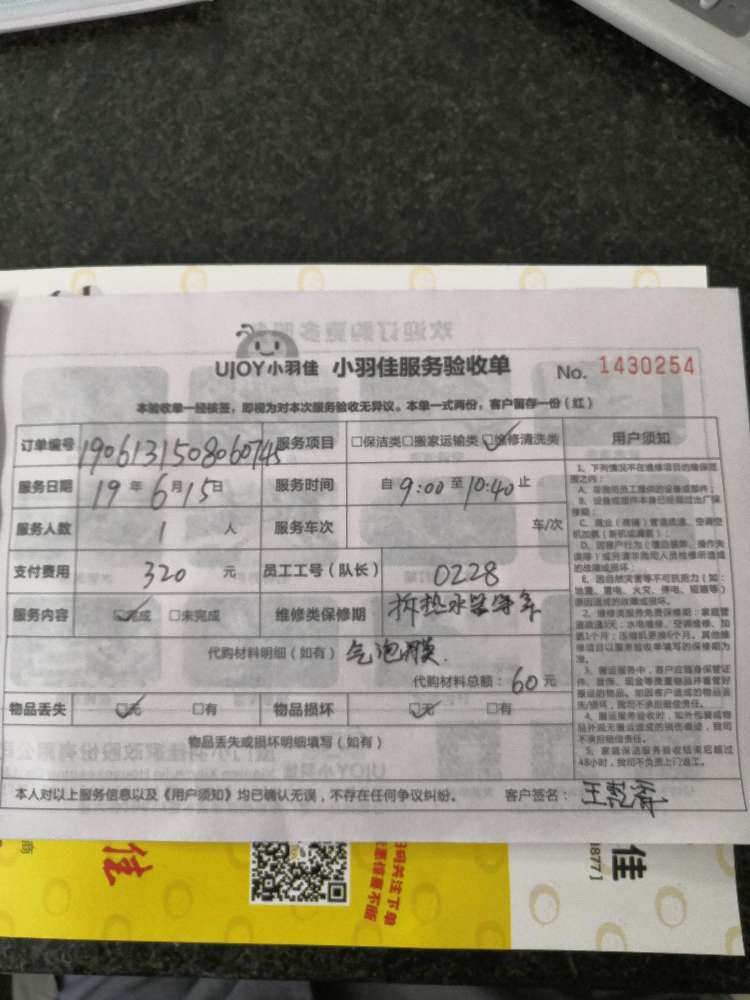 UJOY小羽佳 小羽佳服务验收单 No. 1430254
本验收单一经核签，即视为对本次服务验收无异议。本单一式两份，客户留存一份（红）
订单编号 1906131508060745 服务项目 □保洁类□搬家运输类☑维修清洗类 用户须知
服务日期 19年6月15日 服务时间 自9:00至10:40止
服务人数 1 人 服务车次 车/次
支付费用 320 元 员工工号（队长） 0228
服务内容 ☑完成 □未完成 维修类保修期 拆热水器
代购材料明细（如有）气泡膜.
代购材料总额：60元
物品丢失 ☑无 □有 物品损坏 ☑无 □有
物品丢失或损坏明细填写（如有）
本人对以上服务信息以及《用户须知》均已确认无误，不存在任何争议纠纷。 客户签名：王
1、下列情况不在维修项目的维保范
围之内：
A、非我司员工提供的设备或部件；
B、设备或部件本身已经超过出厂保
修期；
C、商业（商铺）管道疏通、空调空
机加氨（新机或漏氨）；
D、因客户行为（擅自装卸、操作失
误等）或另请非我司人员检修所造成
的故障或损坏；
E、因自然灾害等不可抗能力（如：
地震、雷电、火灾、停电、短路等）
原因造成的故障或损坏。
2、维修类服务免费保修期：家庭管
道疏通3天；水电维修、空调维修、加
氨1个月；压缩机更换6个月。其他维
修项目以服务验收单填写的保修期为
准。
3、搬运服务中，客户应随身保管证
件、首饰、现金等贵重物品并看管好
搬运的物品。如因客户造成的物品丢
失/损坏，我司不承担赔偿责任。
4、搬运服务验收时，如外包装或物
品外观无搬运造成的损伤痕迹，我司
不承担赔偿责任。
5、家庭保洁服务验收结束后超过
48小时，我司不负责上门返工。
佳
扫码关注下单
优惠信息不断
佳
1877]
商